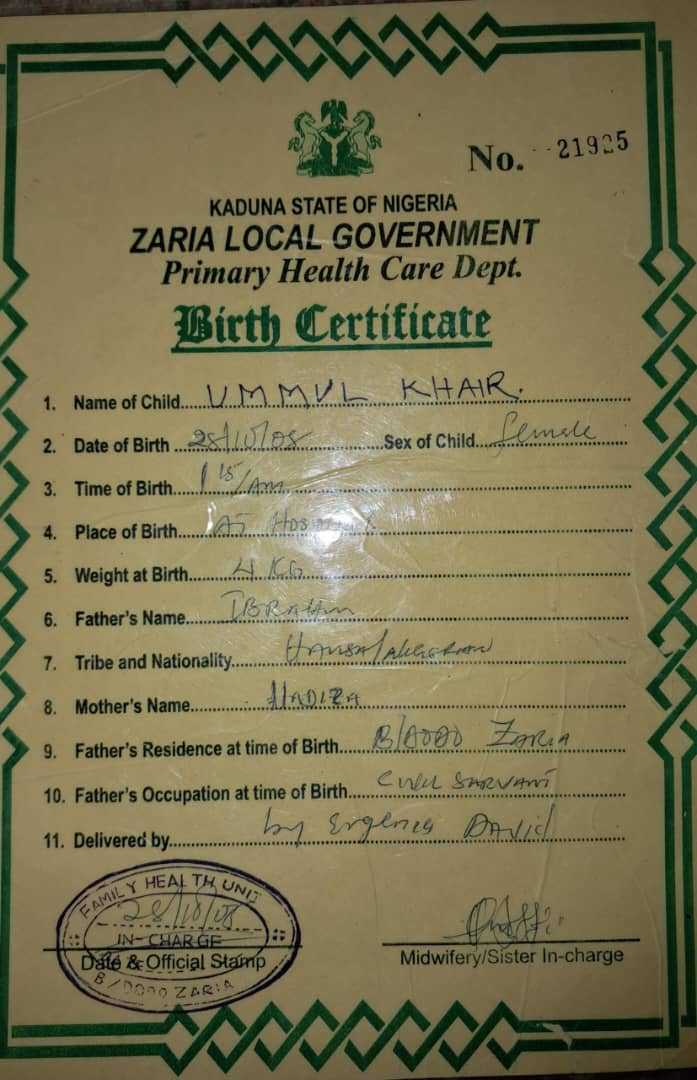 No. 21925
KADUNA STATE OF NIGERIA
ZARIA LOCAL GOVERNMENT
Primary Health Care Dept.
Birth Certificate
1. Name of Child...UMMUL KHAIR.
2. Date of Birth...28/10/08...Sex of Child...female
3. Time of Birth...1 15/AM
4. Place of Birth...At
5. Weight at Birth...4 KG
6. Father's Name...IBRAHIM
7. Tribe and Nationality...Hausa/
8. Mother's Name...HADIZA
9. Father's Residence at time of Birth...B/DODO ZARIA
10. Father's Occupation at time of Birth...CIVIL SARVANT
11. Delivered by...by David
FAMILY HEALTH UNIT
28/10/08
IN-CHARGE
Date & Official Stamp
B/DODO ZARIA
Midwifery/Sister In-charge